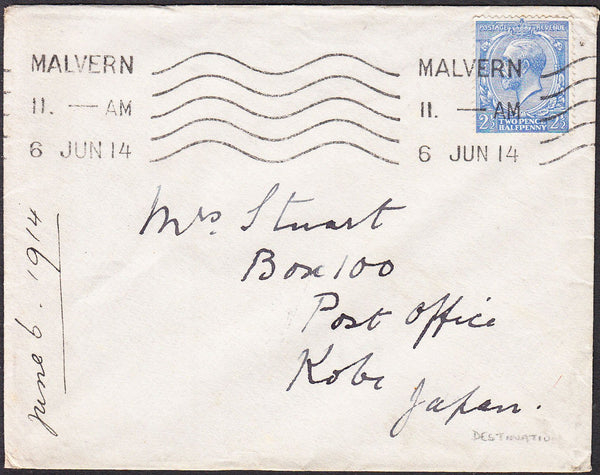 MALVERN
11. — AM
6 JUN 14
MALVERN
11. — AM
6 JUN 14
POSTAGE REVENUE
2½ TWO PENCE HALFPENNY 2½
Mrs Stuart
Box 100
Post Office
Kobe
Japan.
June 6. 1914
DESTINATION